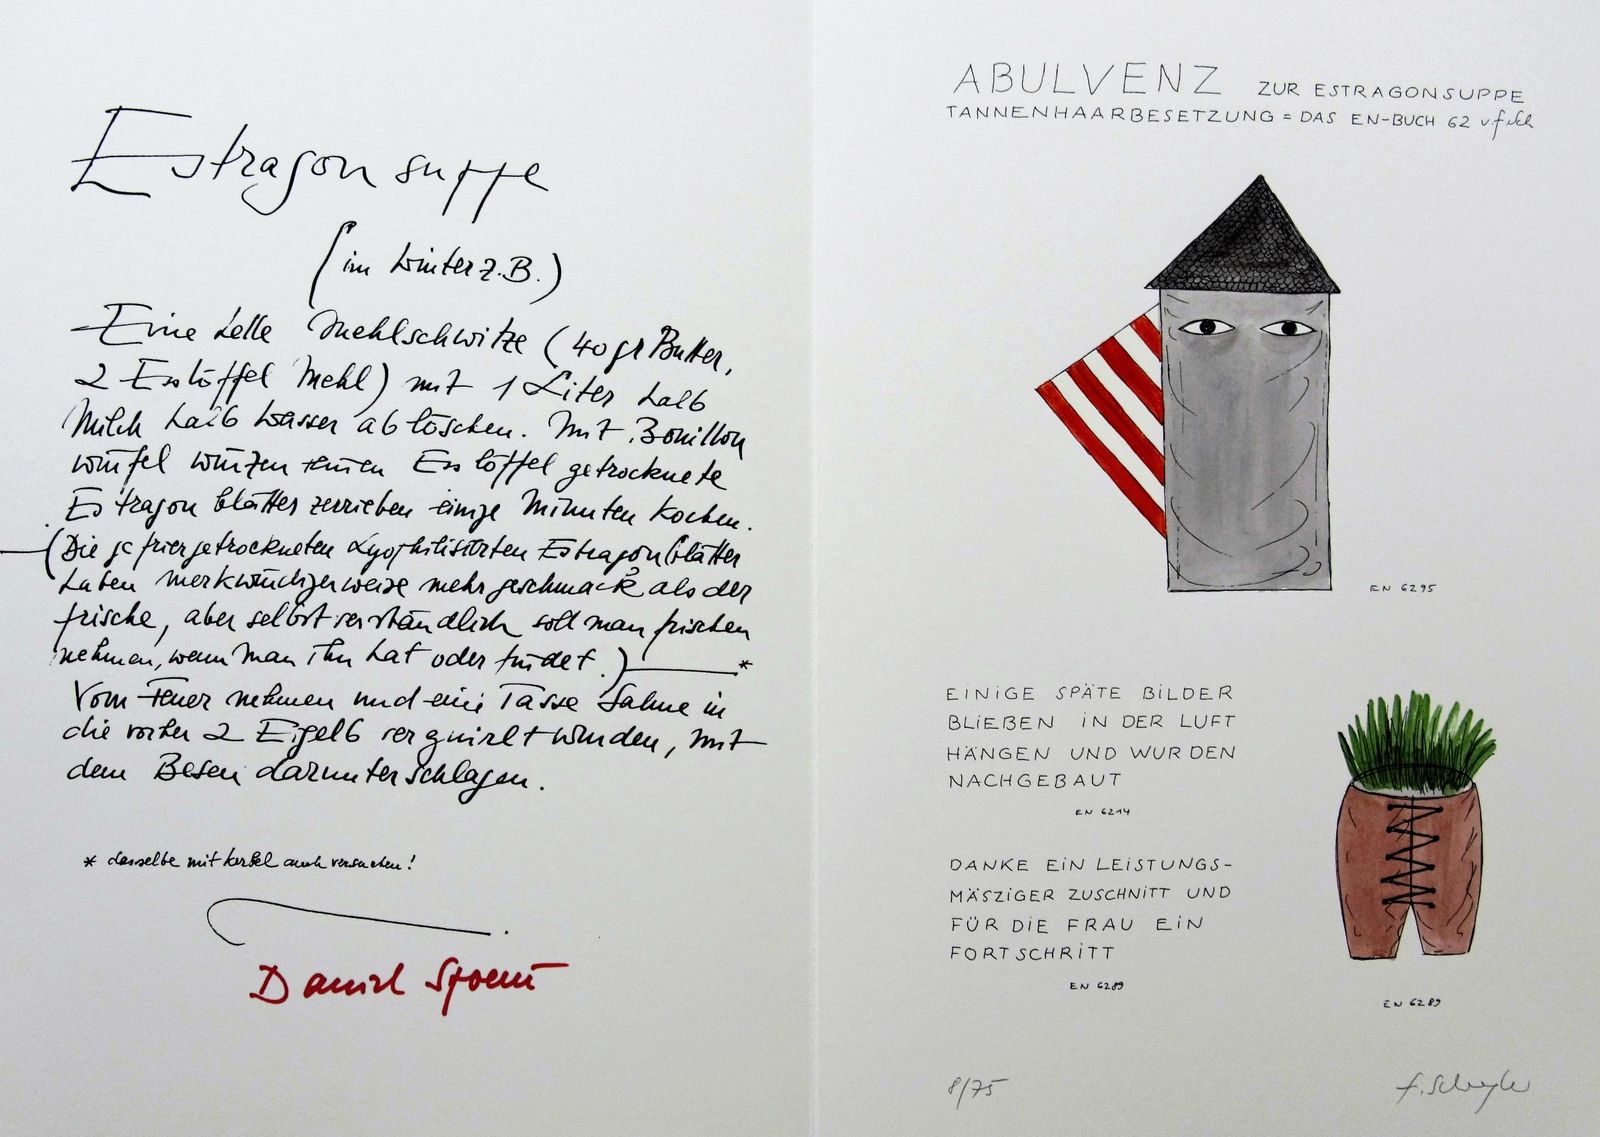 Estragonsuppe
(im Winter z.B.)
Eine helle Mehlschwitze (40 gr Butter,
2 Esslöffel Mehl) mit 1 Liter halb
Milch halb Wasser ablöschen. Mit Bouillon
würfel würzen einen Esslöffel getrocknete
Estragonblätter zerrieben einige Minuten kochen.
(Die gefriergetrockneten Lyophilisierten Estragonblätter
haben merkwürdigerweise mehr geschmack als der
frische, aber selbstverständlich soll man frischen
nehmen, wenn man ihn hat oder findet.) *
Vom Feuer nehmen und eine Tasse Sahne in
die vorher 2 Eigelb verquirlt wurden, mit
dem Besen darunterschlagen.
* dasselbe mit Kerbel auch versuchen!
Daniel Spoerri
ABULVENZ ZUR ESTRAGONSUPPE
TANNENHAARBESETZUNG = DAS EN-BUCH 62 v.f.Sch
EN 6295
EINIGE SPÄTE BILDER
BLIEBEN IN DER LUFT
HÄNGEN UND WURDEN
NACHGEBAUT
EN 6214
DANKE EIN LEISTUNGS-
MÄSZIGER ZUSCHNITT UND
FÜR DIE FRAU EIN
FORTSCHRITT
EN 6289
EN 6289
8/75